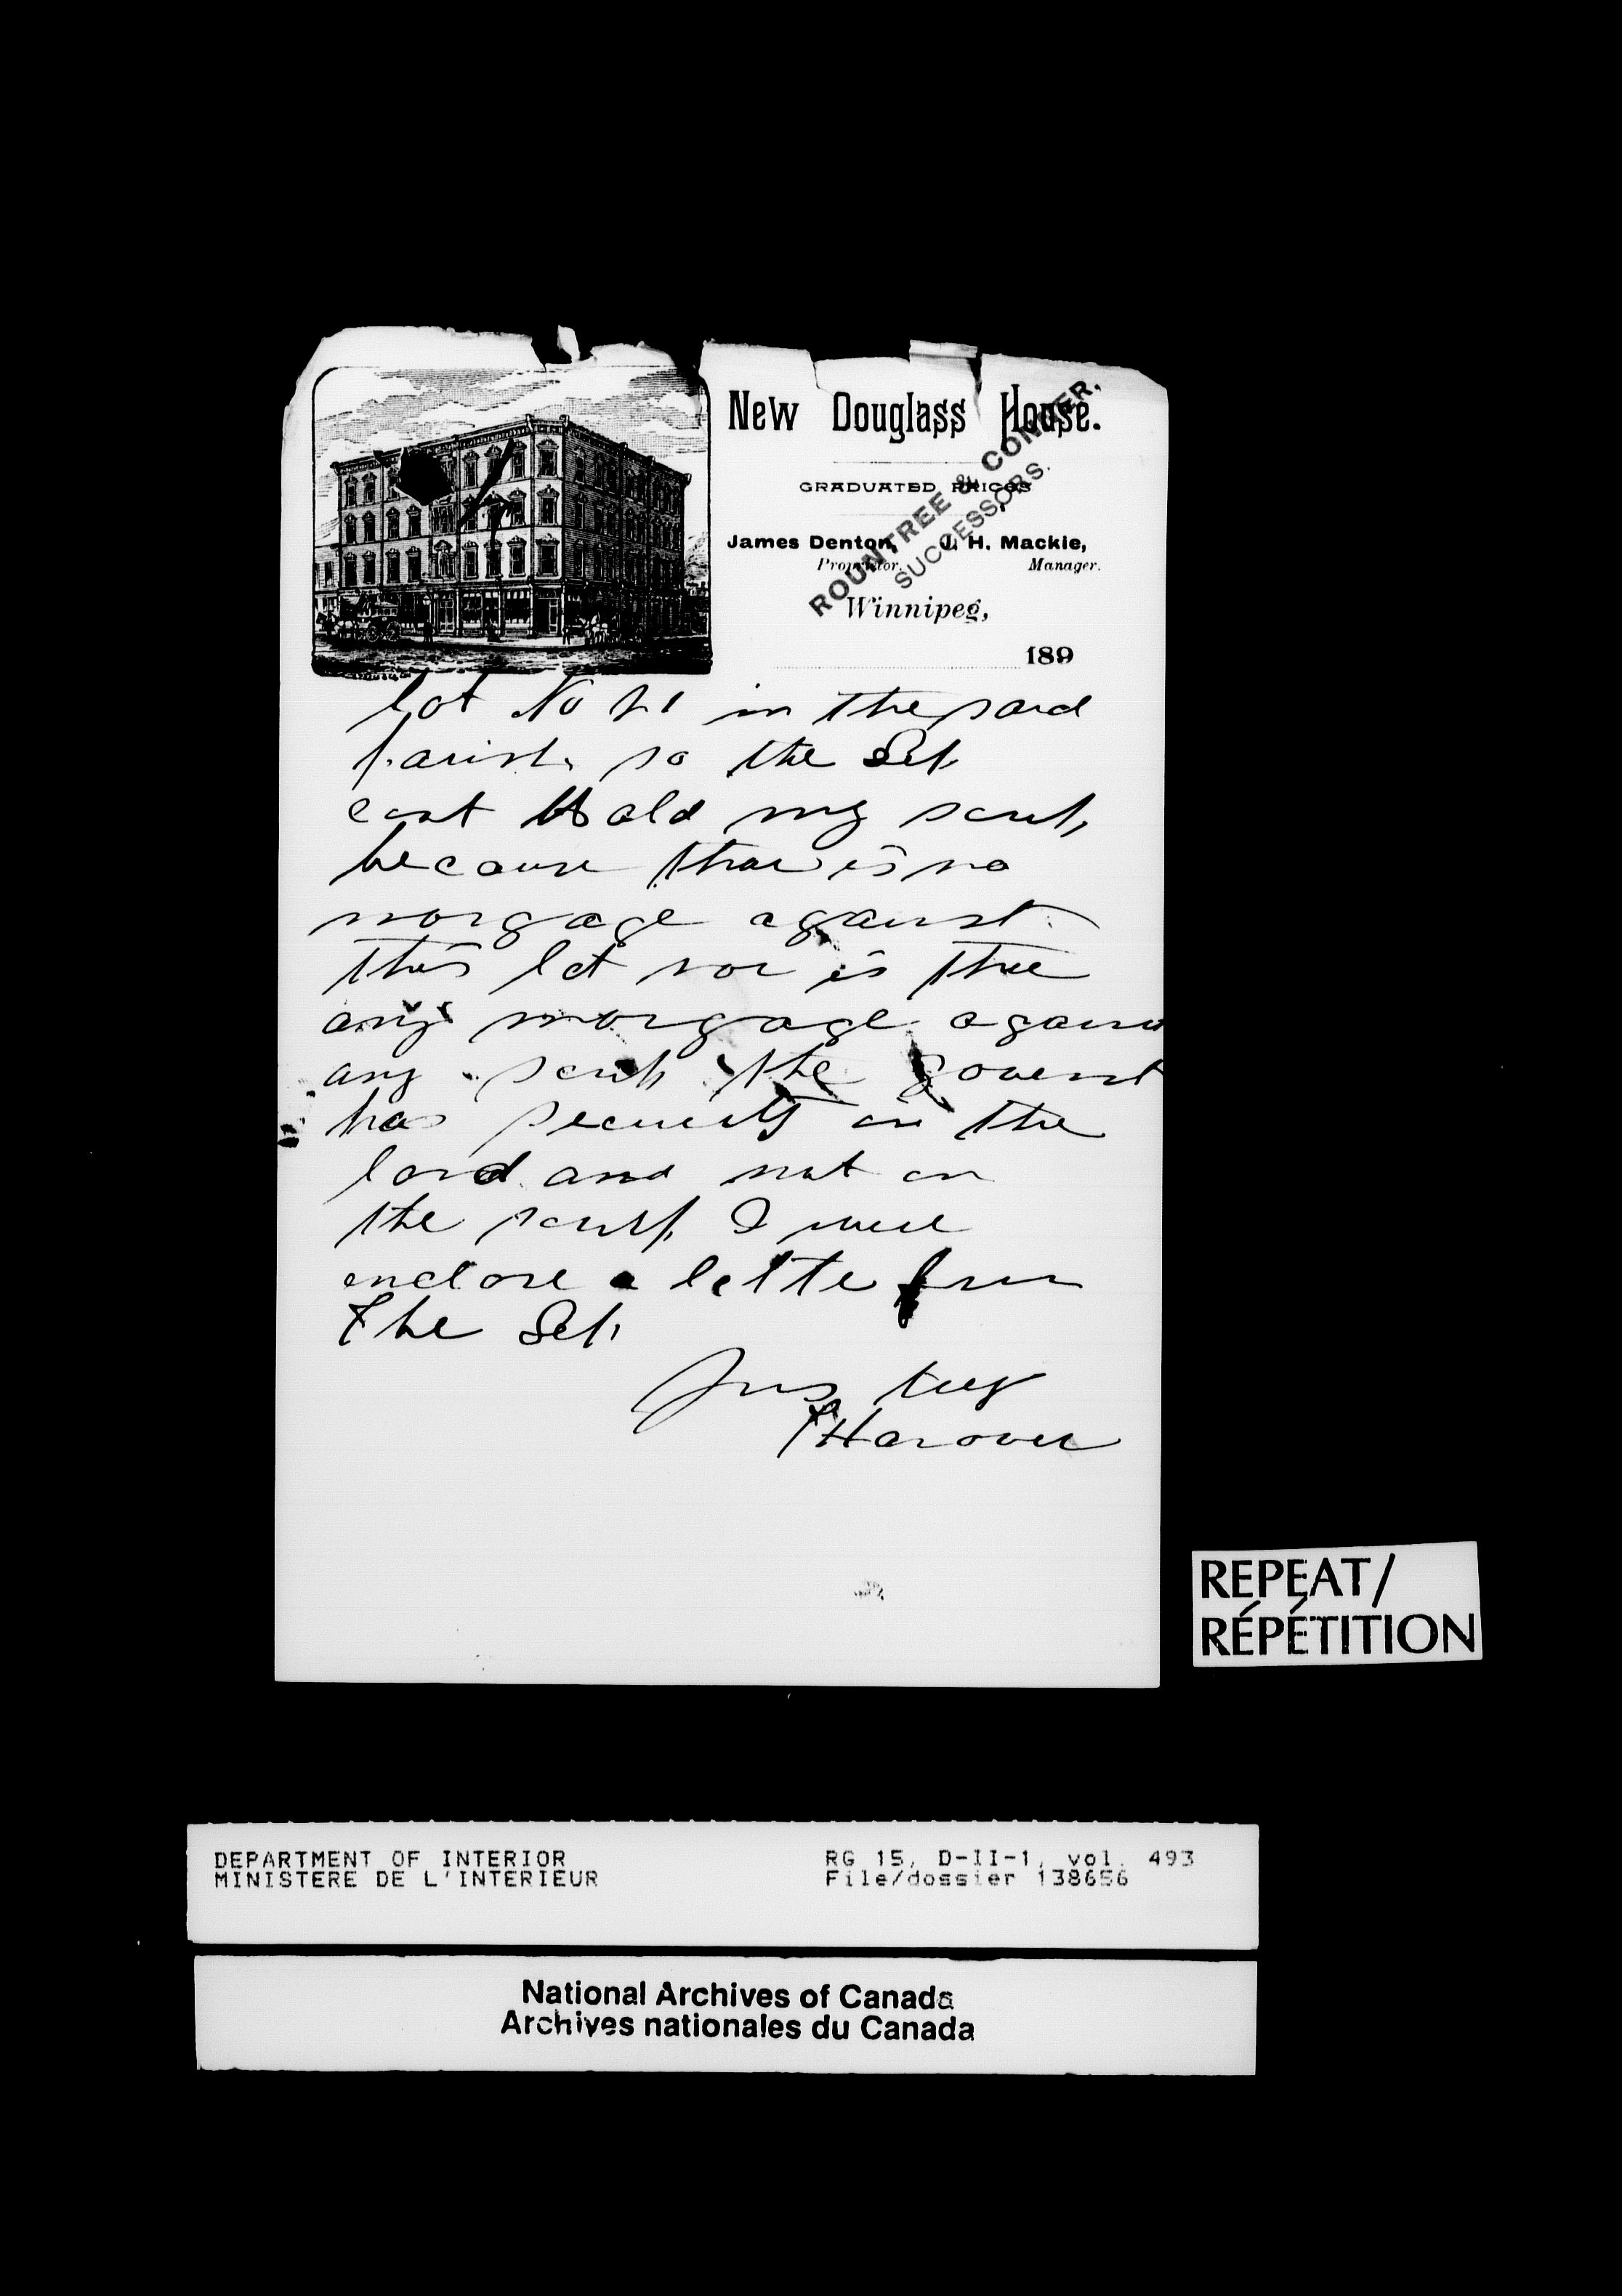 New Douglass House.
GRADUATED PRICES
ROUNTREE & CONGER.
SUCCESSORS.
James Denton, J. H. Mackie,
Proprietor. Manager.
Winnipeg,
189
lot No 21 in the said
parish so the Dept
cant Hold my scrip,
because thar is no
morgage against
this lot nor is thre
any morgage agains
any scrip the Goverst
has security on the
land and not on
the scrip, I will
enclose a letter from
the Dept
Yours truly
Hanover
REPEAT/
RÉPÉTITION
DEPARTMENT OF INTERIOR RG 15, D-II-1, vol. 493
MINISTERE DE L'INTERIEUR File/dossier 138656
National Archives of Canada
Archives nationales du Canada